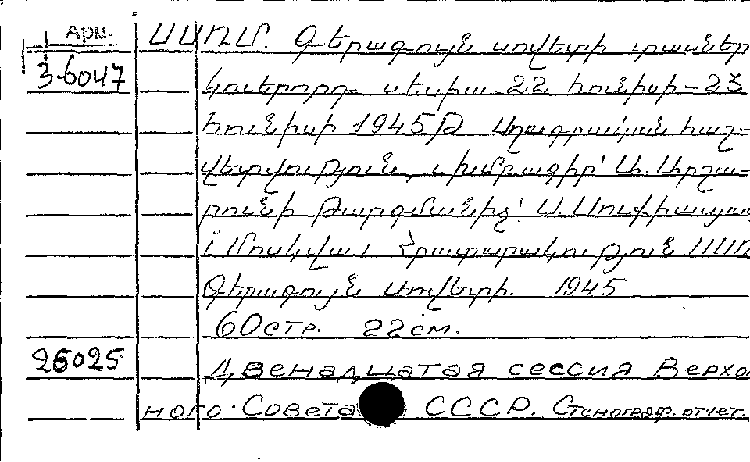 Арм. ՍՍՌՄ. Գերագույն սովետի տասներ
3-6047 կուերորդ սեսիա 22 հունիսի-23
հունիսի 1945թ Սղագրական հաշ-
վետվություն, խմբագիր՝ Ա. Արշա-
րունի Թարգմանիչ՝ Ա. Սուֆիասյան
Մոսկվա, Հրատարակություն ՍՍՌՄ
Գերագույն Սովետի. 1945
60 стр. 22 см.
26025 Двенадцатая сессия Верхо
ного Совета СССР. Стенограф. отчет.